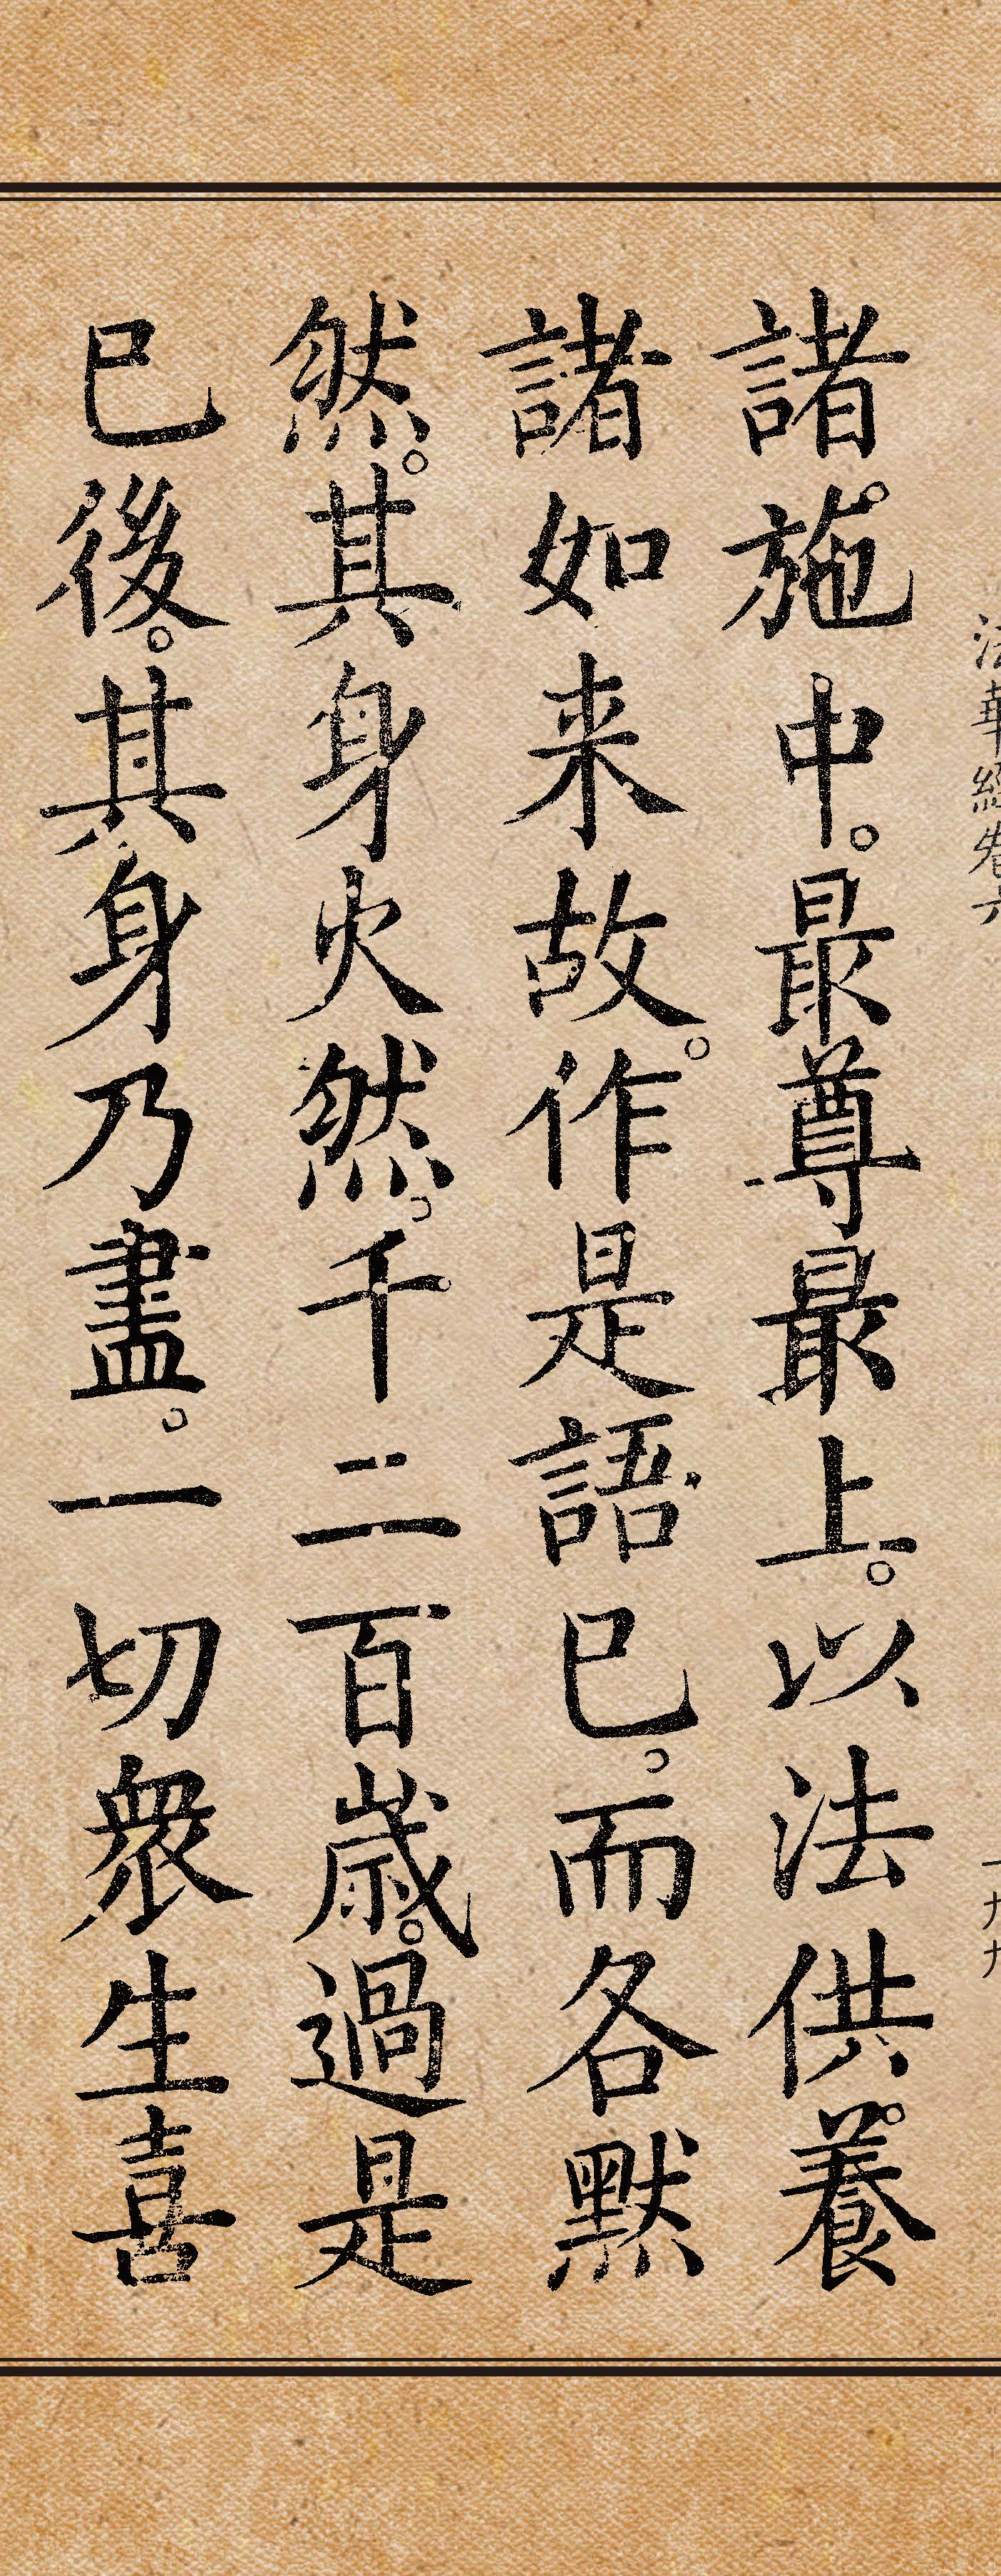 法華經卷六
一九九
諸施中。最尊最上。以法供養
諸如来故。作是語已。而各默
然。其身火然。千二百歲。過是
已後。其身乃盡。一切衆生喜